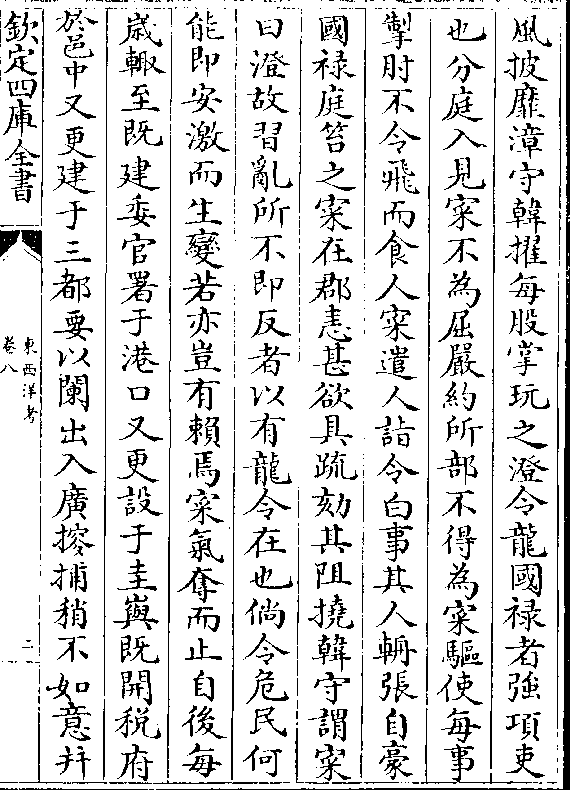 風披靡漳守韓擢每股掌玩之澄令龍國禄者強項吏
也分庭入見寀不為屈嚴約所部不得為寀驅使每事
掣肘不令飛而食人寀遣人詣令白事其人輈張自豪
國禄庭笞之寀在郡恚甚欲具疏劾其阻撓韓守謂寀
曰澄故習亂所不即反者以有龍令在也倘令危民何
能即安激而生變若亦豈有賴焉寀氣奪而止自後每
歲輙至既建委官署于港口又更設于圭嶼既開稅府
於邑中又更建于三都要以闌出入廣搾捕稍不如意并
欽定四庫全書
東西洋考
卷八
二